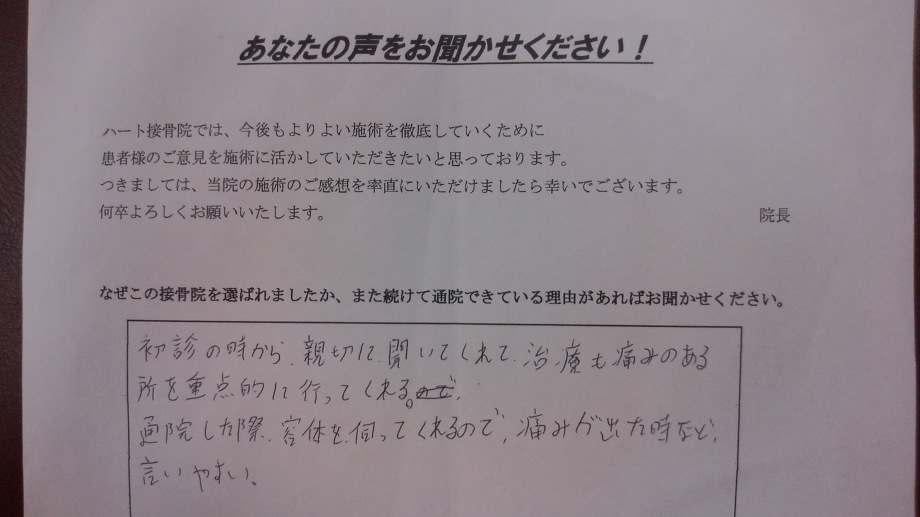 あなたの声をお聞かせください！
ハート接骨院では、今後もよりよい施術を徹底していくために
患者様のご意見を施術に活かしていただきたいと思っております。
つきましては、当院の施術のご感想を率直にいただけましたら幸いでございます。
何卒よろしくお願いいたします。
院長
なぜこの接骨院を選ばれましたか、また続けて通院できている理由があればお聞かせください。
初診の時から、親切に聞いてくれて、治療も痛みのある
所を重点的に行ってくれる。
通院した際、容体を伺ってくれるので、痛みが出た時など、
言いやすい。